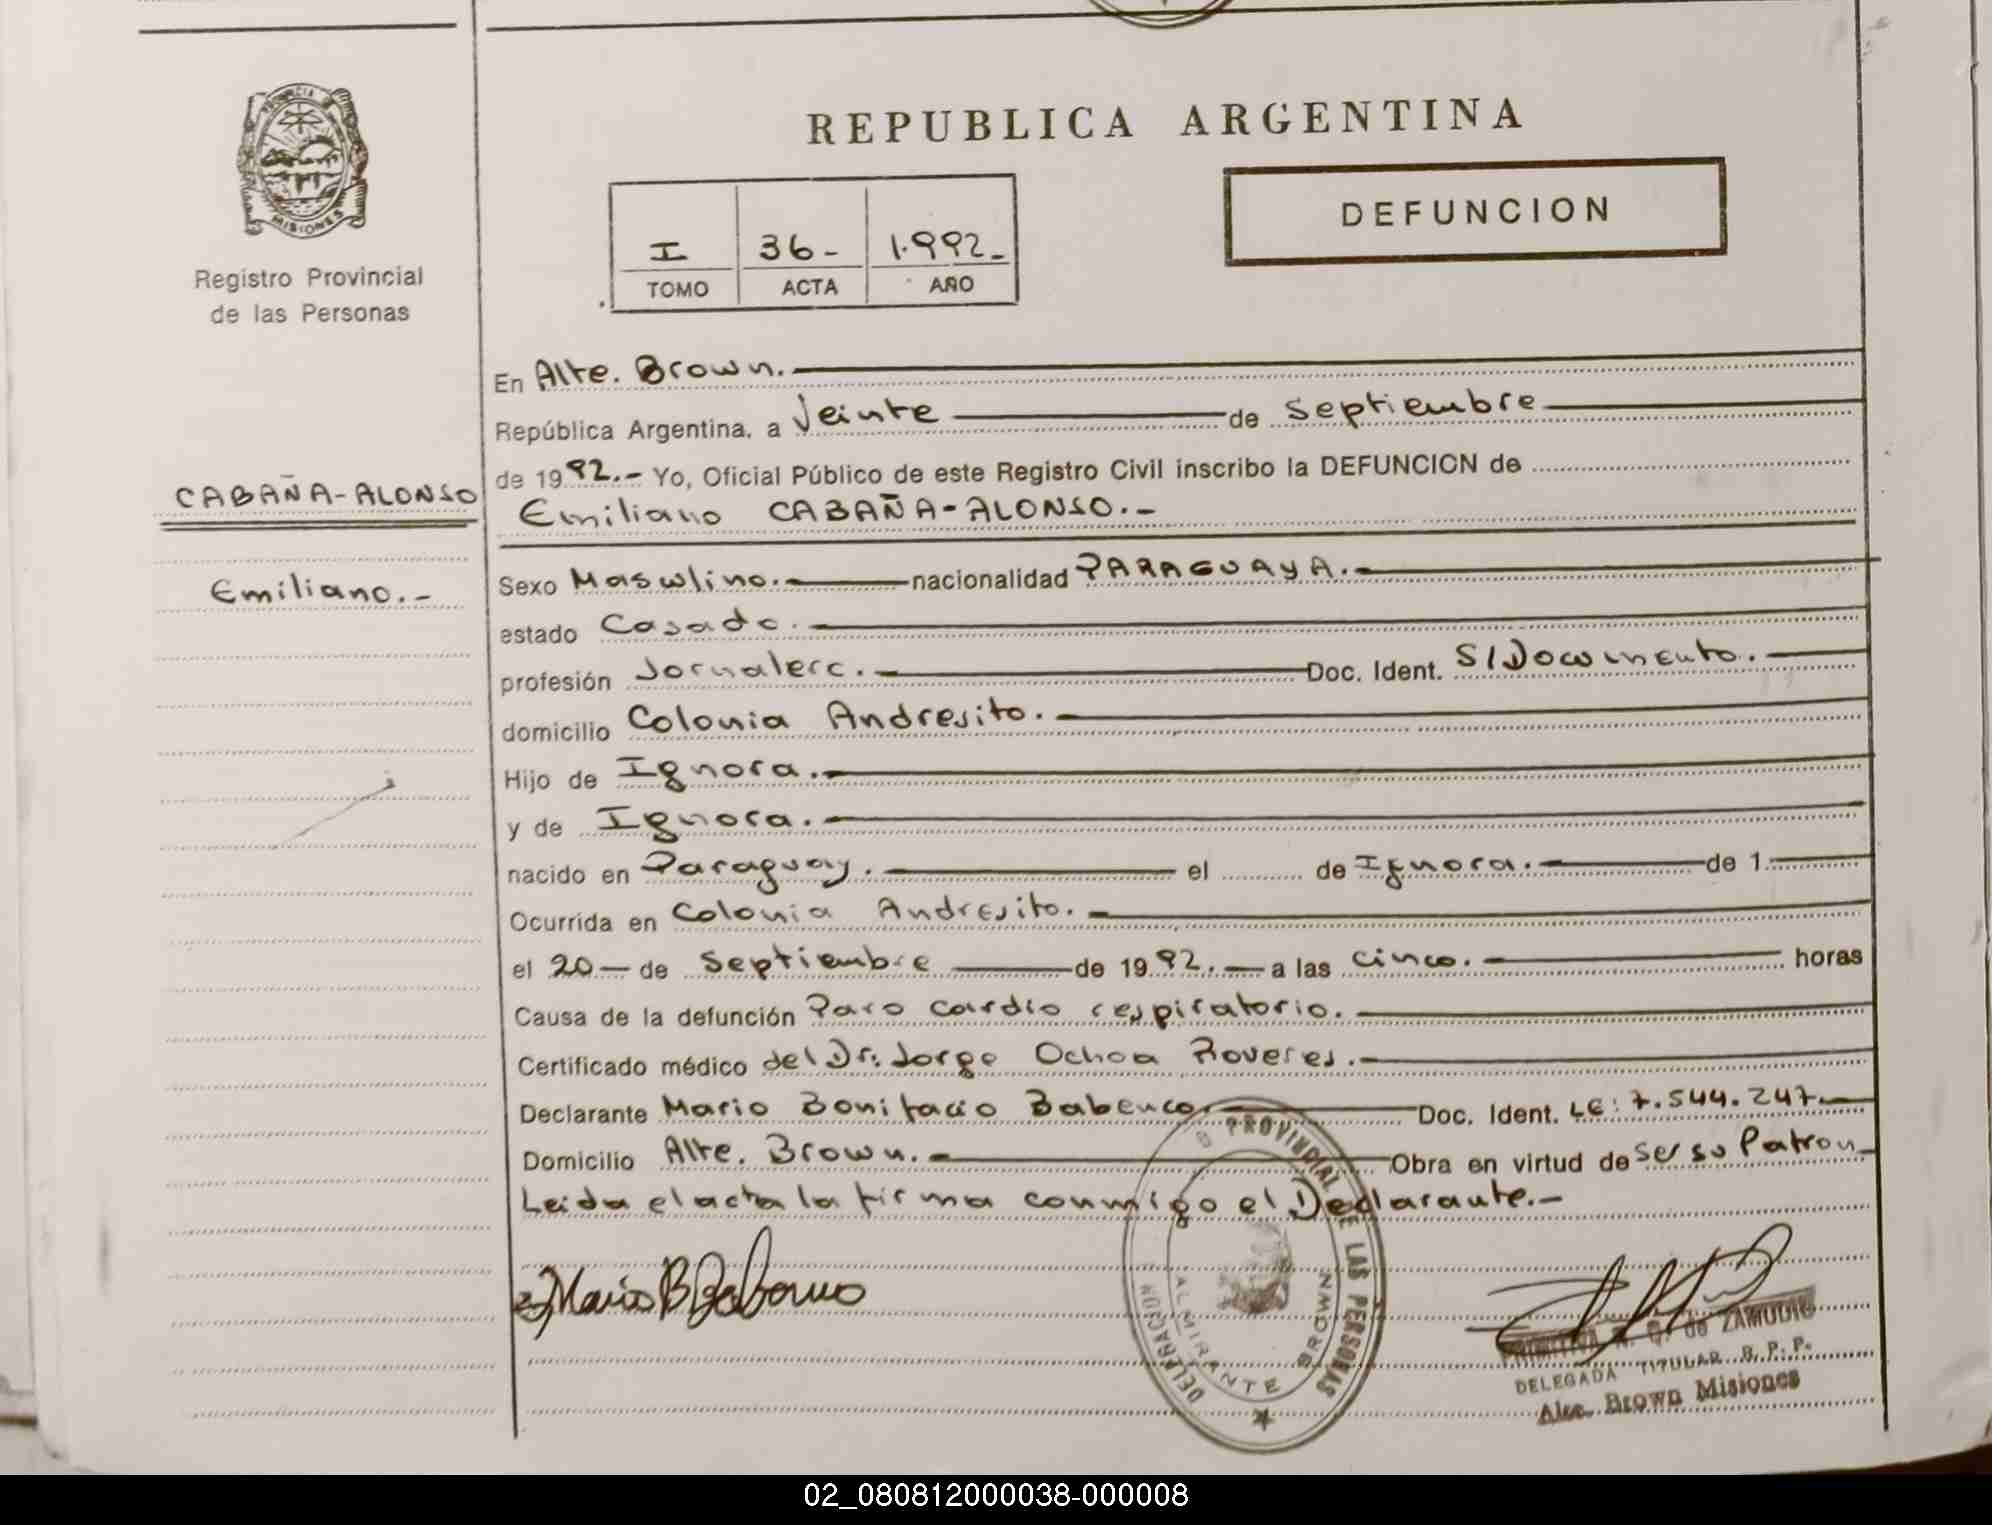 PROVINCIA DE
MISIONES
Registro Provincial
de las Personas
REPUBLICA ARGENTINA
DEFUNCION
I 36- 1.992_
TOMO ACTA AÑO
En Alte. Brown.
República Argentina, a Veinte de Septiembre
de 1992.- Yo, Oficial Público de este Registro Civil inscribo la DEFUNCION de
CABAÑA-ALONSO
Emiliano CABAÑA-ALONSO.-
Emiliano.-
Sexo Masculino. nacionalidad PARAGUAYA.
estado Casado.
profesión Jornalero. Doc. Ident. S/Documento.
domicilio Colonia Andresito.
Hijo de Ignora.
y de Ignora.
nacido en Paraguay. el de Ignora. de 1.
Ocurrida en Colonia Andresito.
el 20 de Septiembre de 1992. a las cinco. horas
Causa de la defunción Paro cardio respiratorio.
Certificado médico del Dr: Jorge Ochoa Roveres.
Declarante Mario Bonifacio Babenco Doc. Ident. LE: 7.544.247.
Domicilio Alte. Brown. Obra en virtud de ser su Patron
Leida el acta la firma conmigo el Declarante.-
Mario B Babenco
PROVINCIAL DE LAS PERSONAS
DELEGACION
ALMIRANTE BROWN
de ZAMUDIO
DELEGADA TITULAR R. P. P.
Alte. Brown Misiones
02_080812000038-000008